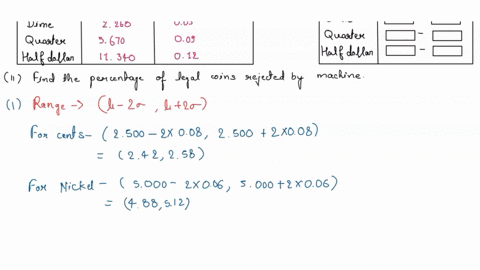 Dime 2.268
Quarter 5.670 0.09 Quarter -
Half dollar 11.340 0.12 Half dollar -
(11) Find the percentage of legal coins rejected by machine.
(1) Range → (μ-2σ, μ+2σ)
For cents- (2.500-2×0.08, 2.500+2×0.08)
= (2.42, 2.58)
For Nickel - (5.000-2×0.06, 5.000+2×0.06)
= (4.88, 5.12)